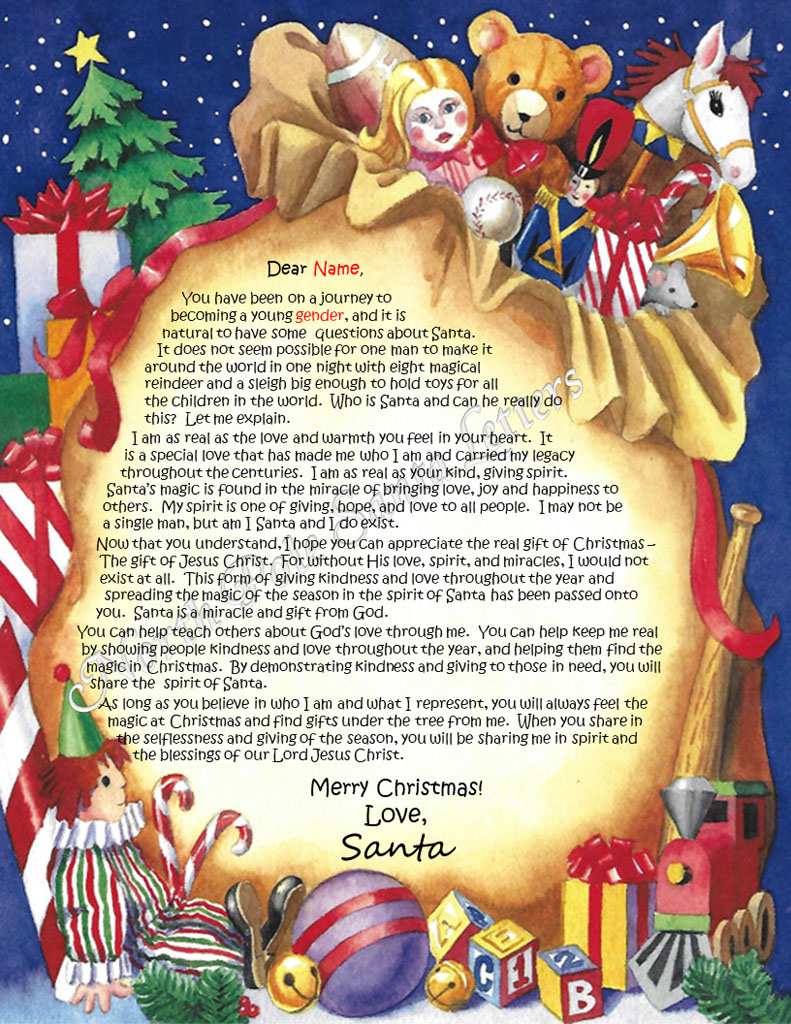 Dear Name,
You have been on a journey to
becoming a young gender, and it is
natural to have some questions about Santa.
It does not seem possible for one man to make it
around the world in one night with eight magical
reindeer and a sleigh big enough to hold toys for all
the children in the world. Who is Santa and can he really do
this? Let me explain.
I am as real as the love and warmth you feel in your heart. It
is a special love that has made me who I am and carried my legacy
throughout the centuries. I am as real as your kind, giving spirit.
Santa's magic is found in the miracle of bringing love, joy and happiness to
others. My spirit is one of giving, hope, and love to all people. I may not be
a single man, but am I Santa and I do exist.
Now that you understand, I hope you can appreciate the real gift of Christmas –
The gift of Jesus Christ. For without His love, spirit, and miracles, I would not
exist at all. This form of giving kindness and love throughout the year and
spreading the magic of the season in the spirit of Santa has been passed onto
you. Santa is a miracle and gift from God.
You can help teach others about God's love through me. You can help keep me real
by showing people kindness and love throughout the year, and helping them find the
magic in Christmas. By demonstrating kindness and giving to those in need, you will
share the spirit of Santa.
As long as you believe in who I am and what I represent, you will always feel the
magic at Christmas and find gifts under the tree from me. When you share in
the selflessness and giving of the season, you will be sharing me in spirit and
the blessings of our Lord Jesus Christ.
Merry Christmas!
Love,
Santa
North Pole Santa Letters
A C E
C 1 2
B